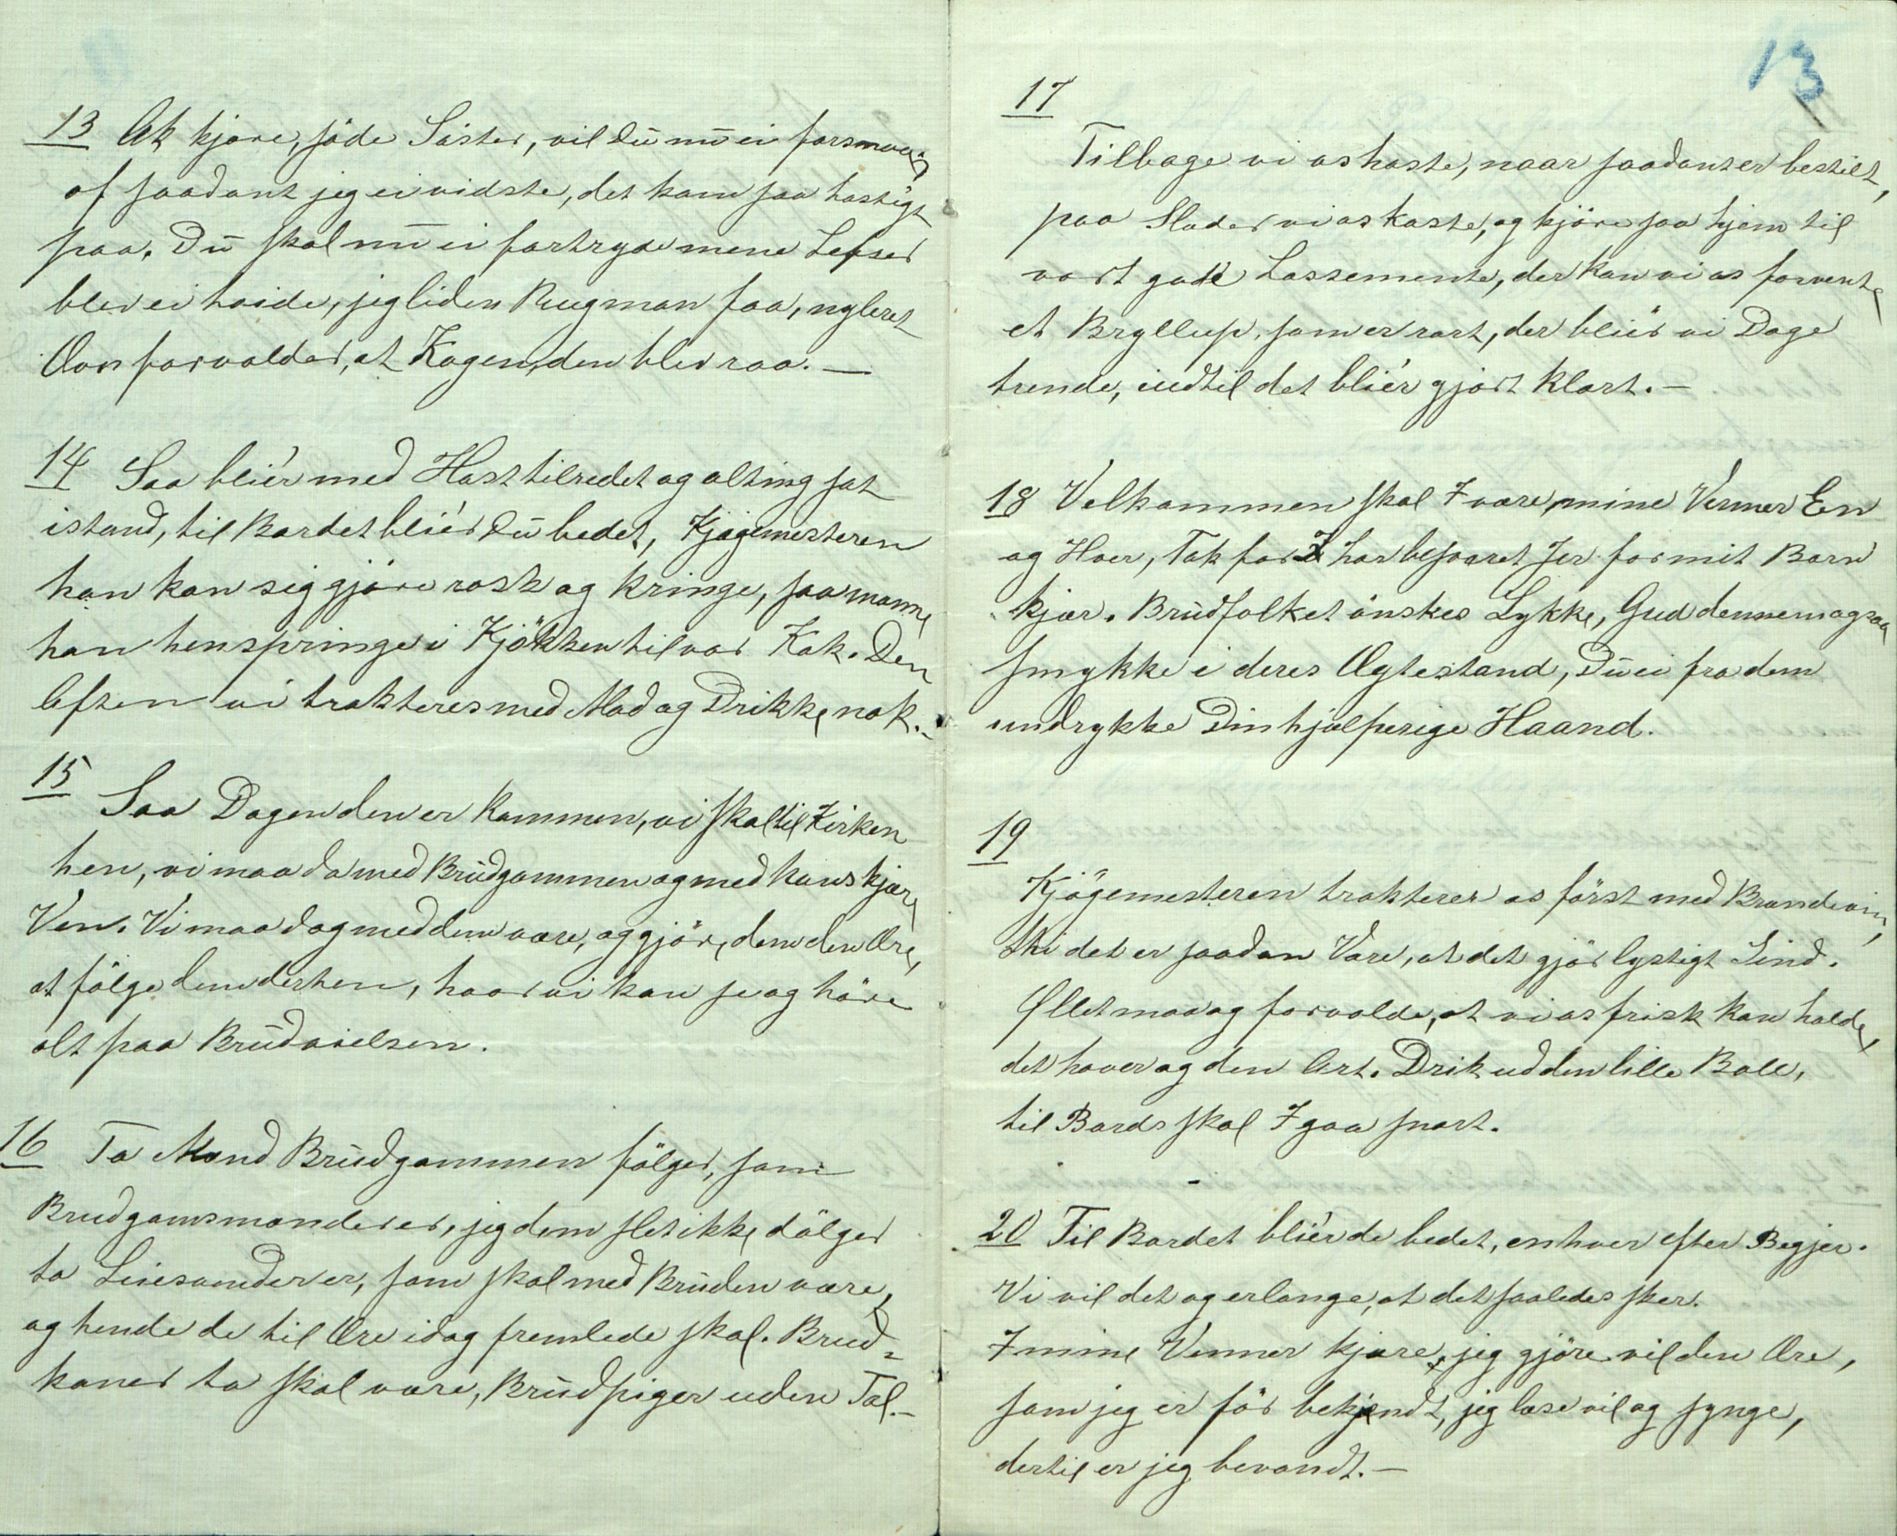 13 Ak kjære, söde Söster, vil Du nu ei forsmaa,
af saadant jeg ei vidste, det kom saa hastigt
paa. Du skal nu ei fortryde mene Lefser
blev ei hvide, jeg liden Rugman faa, nyleret
Ovn forvolder, at Kagen, den blev raa. —
14 Saa bliér med Hast tilredet og alting sat
istand, til Bordet bliér Du bedet, Kjögemesteren
han kan sig gjöre rask og kringe, saa monne
han henspringe i Kjökken til vor Kok. Den
Aften vi trakteres med Mad og Drikke nok. –
15
Saa Dagen den er kommen, vi skal til Kirken
hen, vi maa da med Brudgommen og med hans kjære
Ven. Vi maa dog med dem være, og gjöre dem den Ære,
at fölge dem derhen, hvor vi kan se og höre
alt paa Brudvielsen.
16 To Mænd Brudgommen fölger, som
Brudgomsmænder er, jeg dem slet ikke dölger
to Leiesvender er, som skal med Bruden være,
og hende de til Ære idag fremlede skal. Brud-
koner to skal være, Brudpiger uden Tal. –
13
17
Tilbage vi os haste, naar saadant er bestilt,
paa Slæder vi os kaste, og kjöre saa hjem til
vort gode Lossemente, der kan vi os forvente
et Bryllup, som er rart, der bliér vi Dage
trende, indtil det bliér gjort klart. –
18 Velkommen skal I være, mine Venner En
og Hver, Tak for I har besvaret Jer for mit Barn
kjær. Brudfolket önskes Lykke, Gud dennem ogsaa
smykke i deres Ægtestand, Du ei fra dem
undrykke Din hjælperige Haand.
19
Kjögemesteren trakterer os först med Brændevin,
thi det er saadan Vare, at det gjör lystigt Sind.
Øllet maa og forvolde, at vi os frisk kan holde,
det haver og den Art. Drik ud den lille Bolle,
til Bords skal I gaa snart.
20 Til Bordet bliér de bedet, enhver efter Begjer.
Vi vil det og erlange, at det saaledes sker.
I mine Venner kjære, jeg gjöre vil den Ære,
som jeg er för bekjendt, jeg læse vil og synge,
dertil er jeg bevandt. –